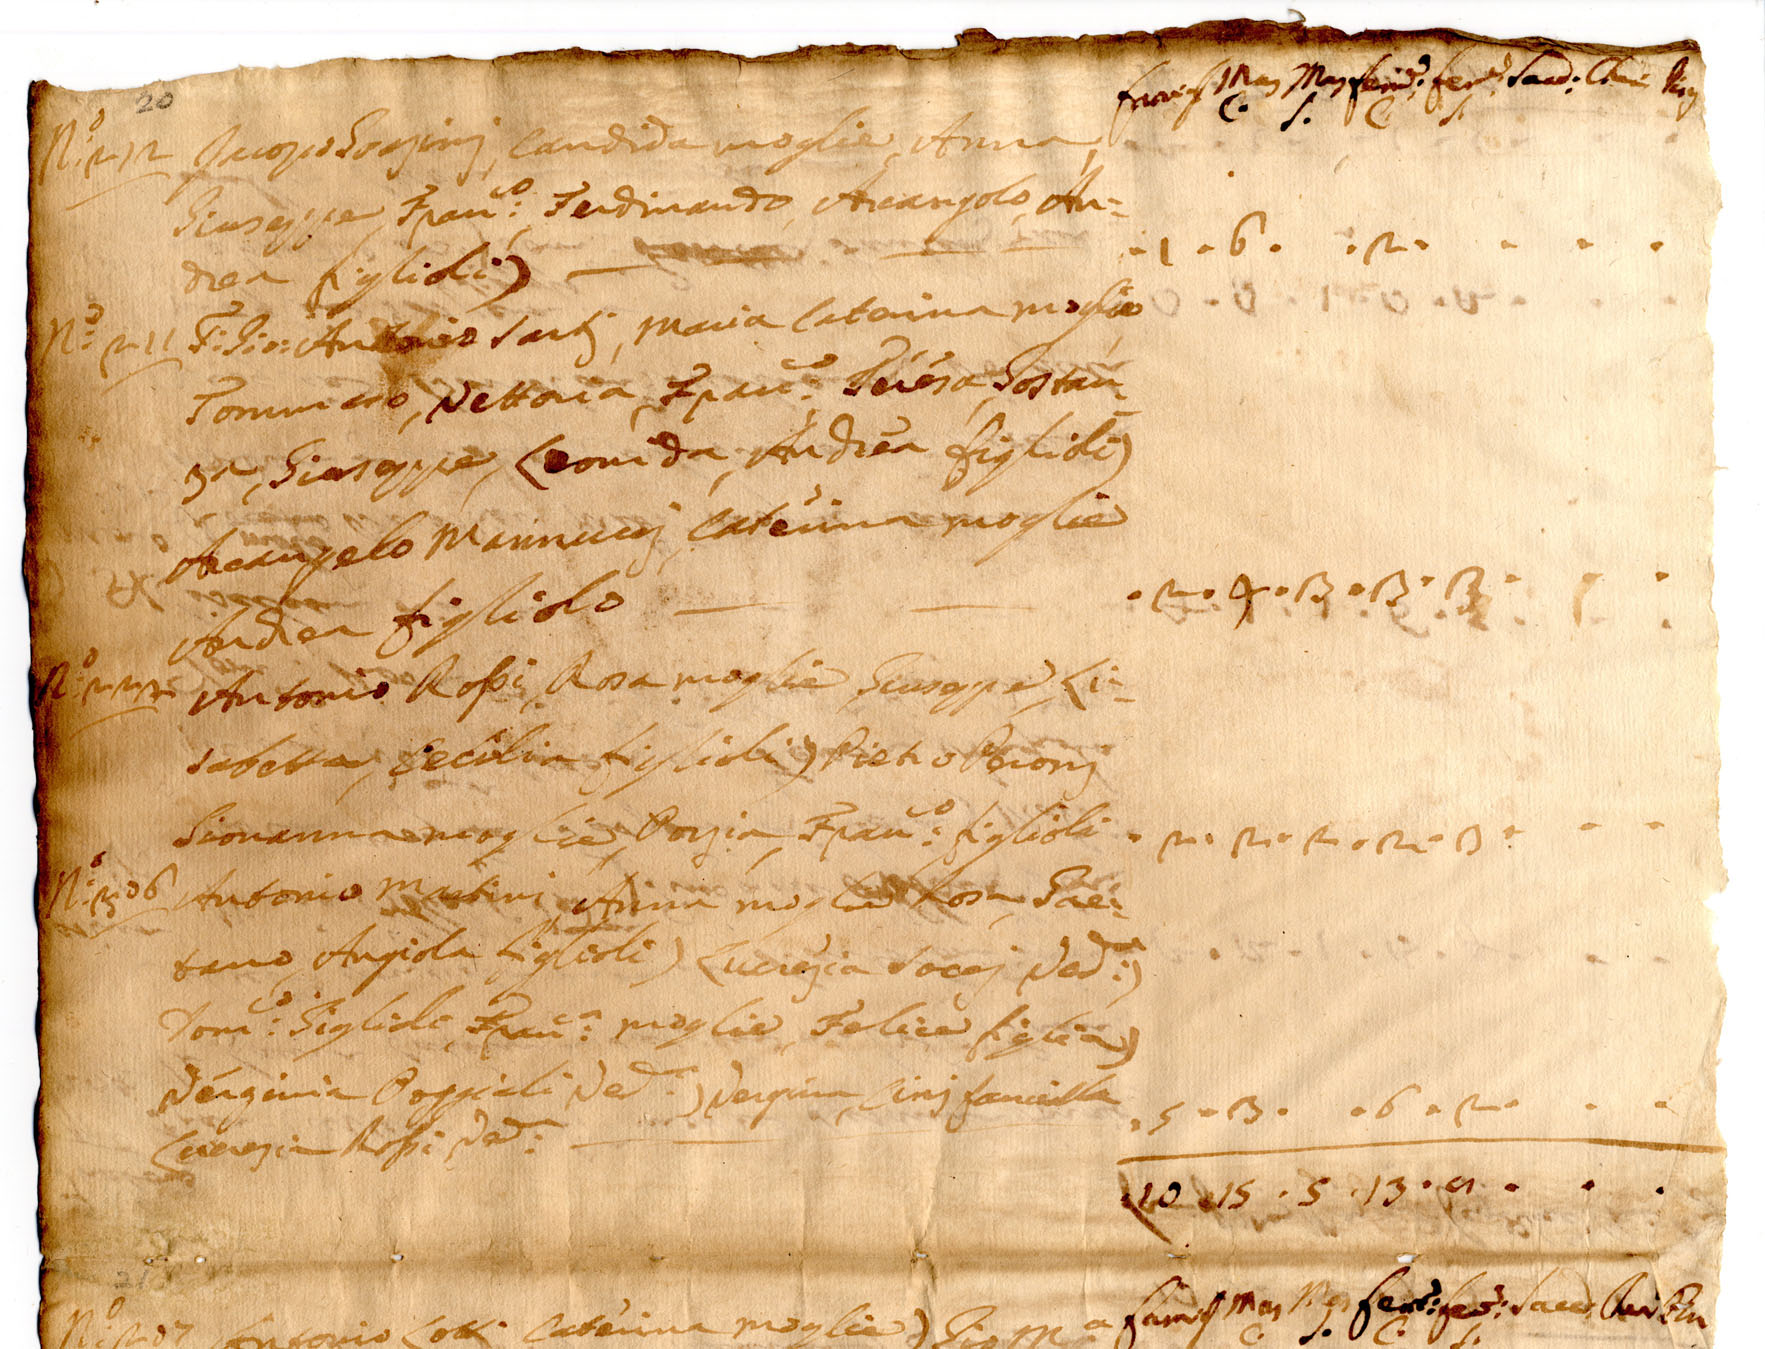 20
famig Mas Mas fem: fem: Sacd: Cher
C. S. C. S.
Candida moglie, Anna,
Giuseppe, Fran:co Ferdinando, Arcangolo, An=
drea figlioli) · 1 · 6 · · 2 · · · ·
F: Gio: Antonio Sarti, Maria Caterina moglie
Tommaso, Vettoria, Fran:co Teresa, Gostan=
za, Giuseppe, Leonida, Andrea figlioli)
Arcangelo Mannucci, Caterina moglie
Andrea figliolo · 2 · 4 · 3 · 3 · 3 · · ·
Antonio Rossi, Rosa moglie, Giuseppe, Li=
sabetta, Cecilia figlioli) Pietro Peronj
Giovanna moglie, Porzia, Fran:co figlioli · 2 · 2 · 2 · 2 · 3 · · ·
Antonio Martini, Anna moglie Rosa, Gae=
tano, Angiola figlioli) Lucrezia Ved:a)
Dom:co Figlioli, Fran:ca moglie, Felice figlia)
Verginia Poggiali Ved:a) Vergina Cinj fanciulla
Lucrezia Rossi Ved:a · 5 · 3 · · 6 · 2 · · ·
10 · 15 · 5 · 13 · · · ·
21
famig Mas Mas fem: fem: Sacd: Cher
C. S. C. S.
Antonio Lotti Caterina moglie)